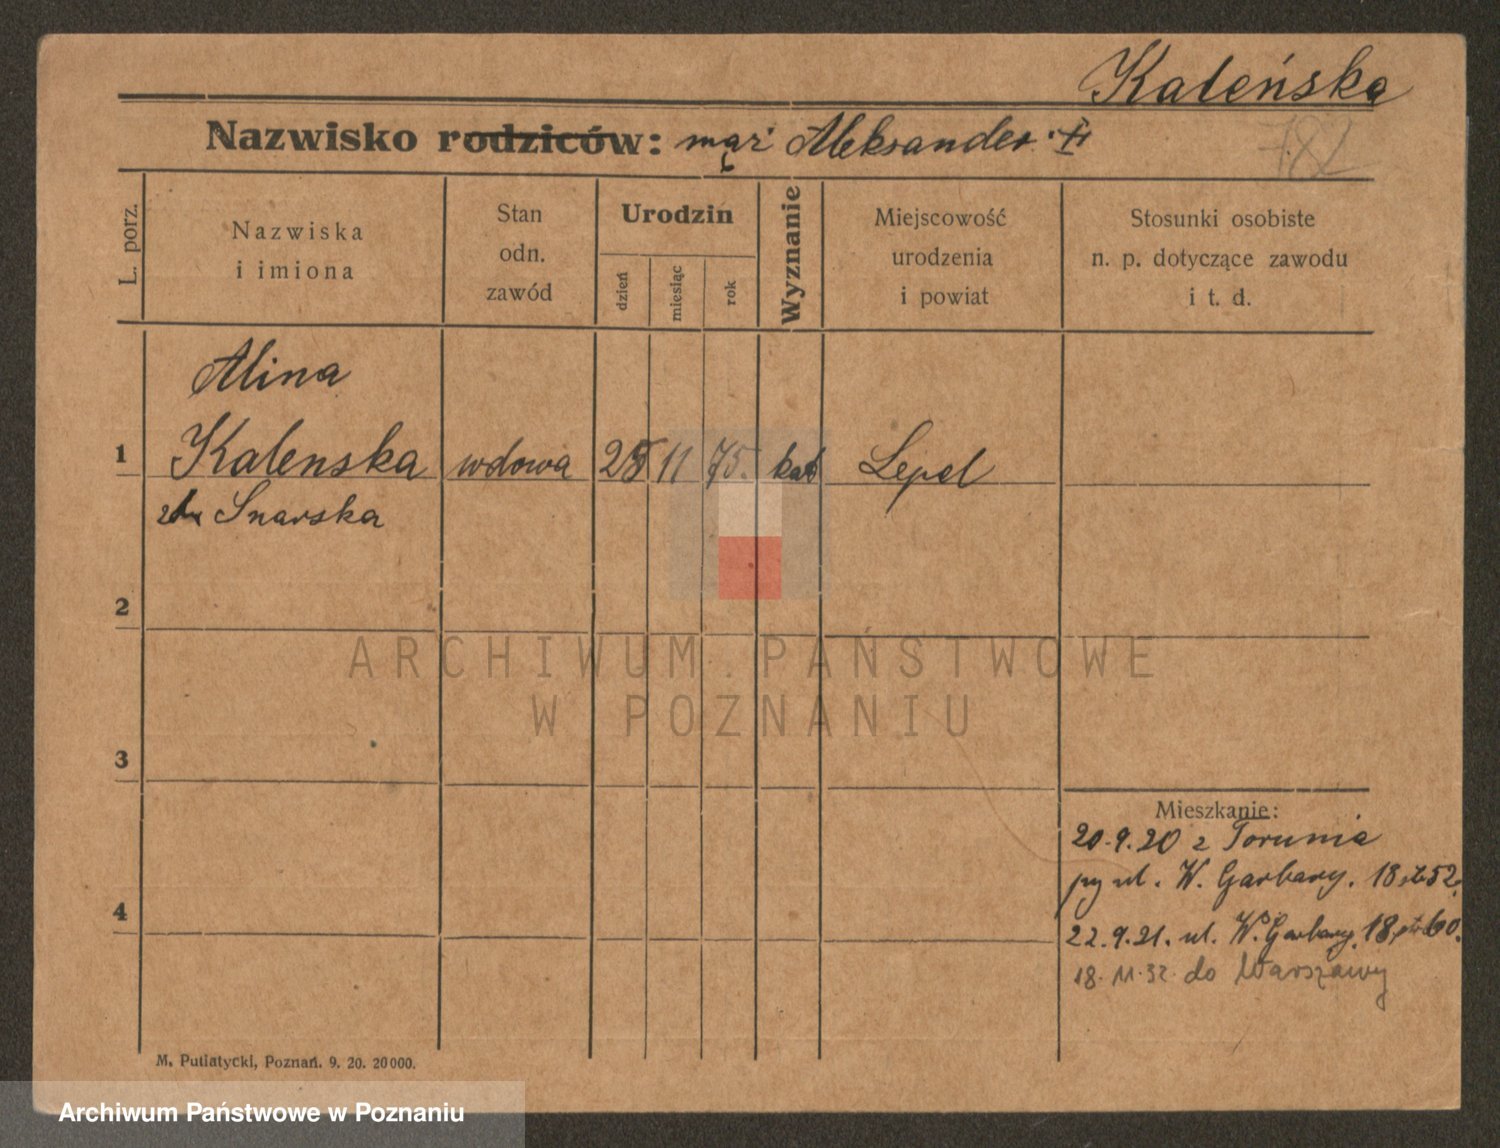 Kaleńska
Nazwisko rodziców: mąż Aleksander
782
L. porz.
Nazwiska
i imiona
Stan
odn.
zawód
Urodzin
dzień
miesiąc
rok
Wyznanie
Miejscowość
urodzenia
i powiat
Stosunki osobiste
n. p. dotyczące zawodu
i t. d.
Alina
1 Kalenska wdowa 25 11 75. kat Lepel
Snarska
2
3
4
Mieszkanie:
20.9.20 z Torunia
ul. W. Garbary. 18 52
22.9.21. ul. W. Garbary 18 60.
18.11.32 do Warszawy
M. Putiatycki, Poznań. 9. 20. 20000.
ARCHIWUM PAŃSTWOWE
W POZNANIU
Archiwum Państwowe w Poznaniu